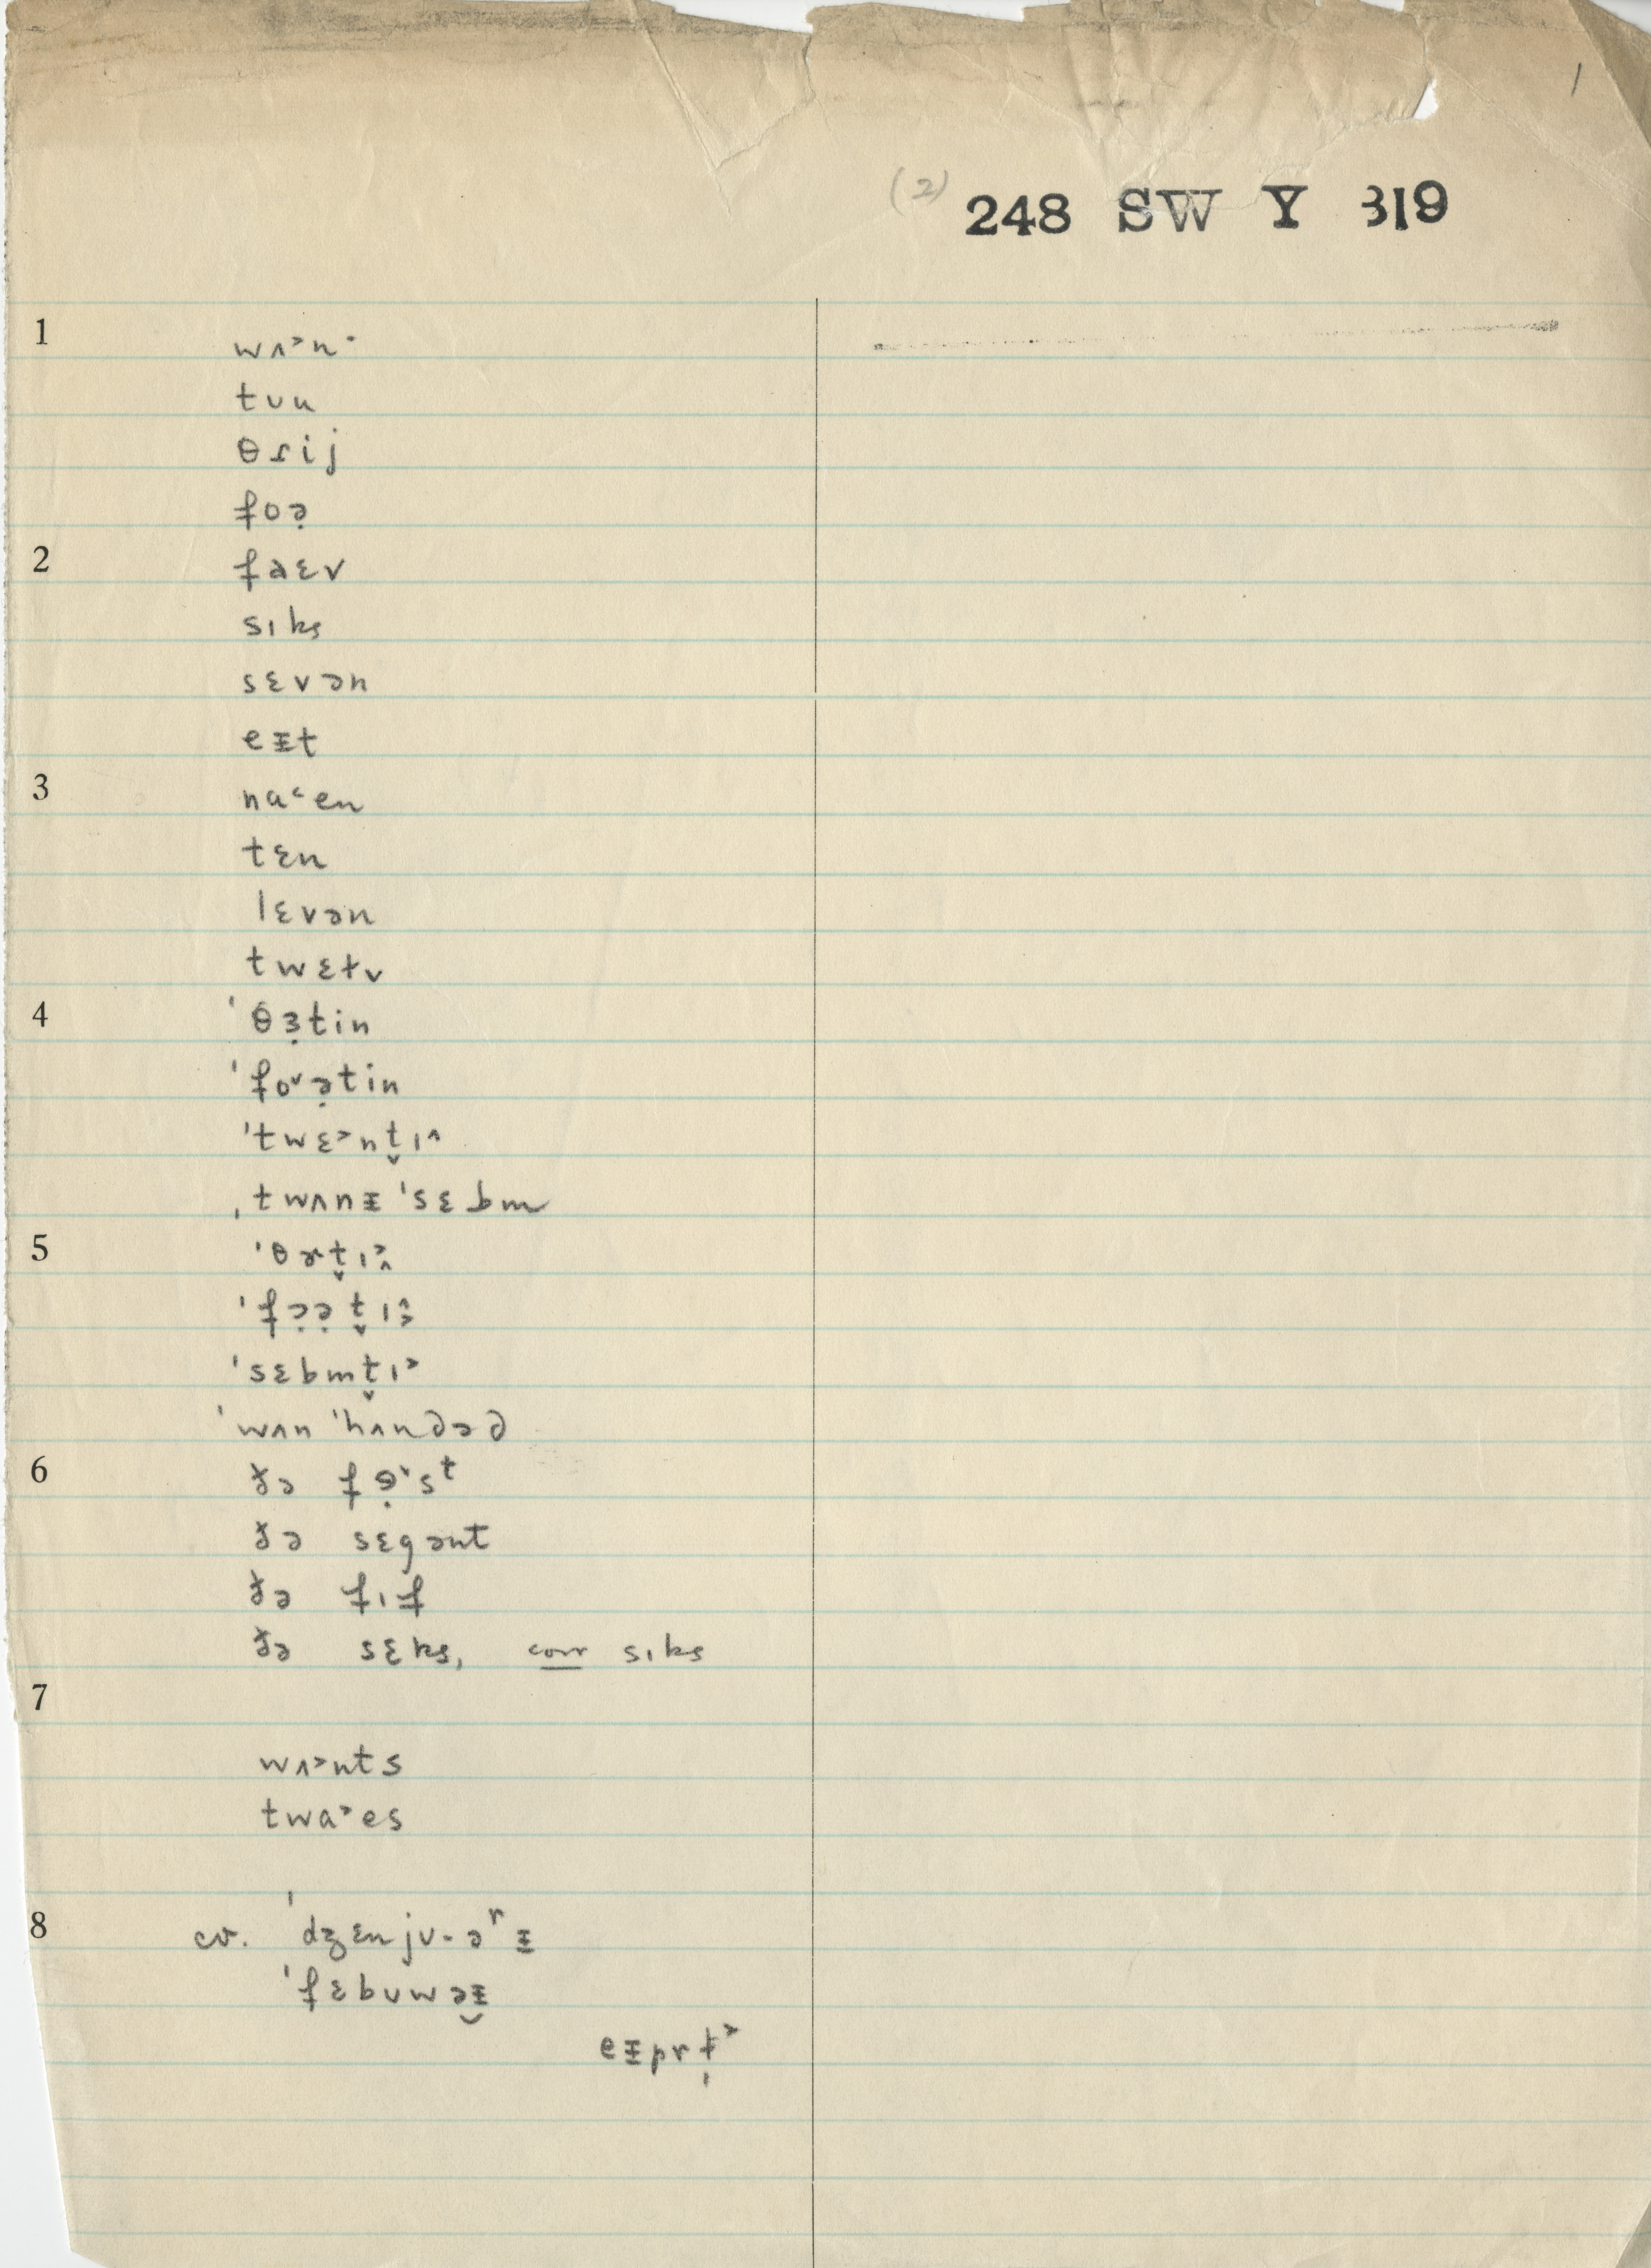 1
(2) 248 SW Y 319
1
wʌ˃n·
tuu
θɾij
foə̣
2
faɛv
sɪks
sɛvən
eᵻt
3
na˂en
tɛn
lɛvən
twɛtv
4
ˈθɜ̣tin
ˈfo˅ə̣tin
ˈtwɛ˃nt̬ɪ˄
ˌtwʌnᵻ ˈsɛbm
5
ˈθɚt̬ɪ˃˄
ˈfɔ̣ə̣t̬ɪ˄˃
ˈsɛbmt̬ɪ˃
ˈwʌn ˈhʌndəd
6
ðə fɘ̣˅sᵗ
ðə sɛgənt
ðə fɪf
ðə sɛks, corr sɪks
7
wʌ˃nts
twa˃es
8
cv. ˈdʒɛnjʊ-əʳᵻ
ˈfɛbuwəᵻ̯
eᵻprɫ̩˃